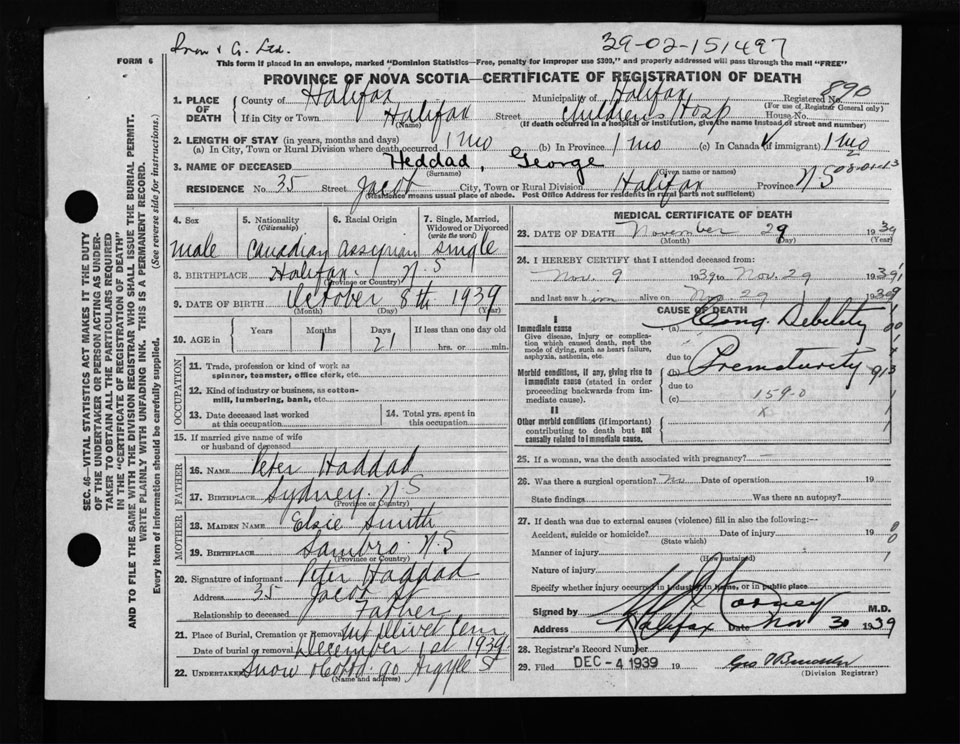 Snow & Co. Ltd.
39-02-151497
FORM 6
This form if placed in an envelope, marked "Dominion Statistics—Free, penalty for improper use $300," and properly addressed will pass through the mail "FREE"
PROVINCE OF NOVA SCOTIA—CERTIFICATE OF REGISTRATION OF DEATH
1. PLACE OF DEATH County of Halifax Municipality of Halifax Registered No. 890
(For use of Registrar General only)
If in City or Town Halifax Street Childrens Hosp House No.
(Name) (If death occurred in a hospital or institution, give the name instead of street and number)
2. LENGTH OF STAY (in years, months and days)
(a) In City, Town or Rural Division where death occurred 1 mo (b) In Province 1 mo (c) In Canada (if immigrant) 1 mo
3. NAME OF DECEASED Heddad, George
(Surname) (Given name or names)
RESIDENCE No. 35 Street Jacob City, Town or Rural Division Halifax Province NS
(Residence means usual place of abode. Post Office Address for residents in rural parts not sufficient)
4. Sex male
5. Nationality (Citizenship) Canadian
6. Racial Origin Assyrian
7. Single, Married, Widowed or Divorced (write the word) single
8. BIRTHPLACE Halifax. N.S
(Province or Country)
9. DATE OF BIRTH October 8th 1939
(Month) (Day) (Year)
10. AGE in Years Months 1 Days 21 If less than one day old hrs. or min.
OCCUPATION
11. Trade, profession or kind of work as spinner, teamster, office clerk, etc.
12. Kind of industry or business, as cotton-mill, lumbering, bank, etc.
13. Date deceased last worked at this occupation
14. Total yrs. spent in this occupation
15. If married give name of wife or husband of deceased
FATHER
16. NAME Peter Haddad
17. BIRTHPLACE Sydney. N.S
(Province or Country)
MOTHER
18. MAIDEN NAME Elsie Smith
19. BIRTHPLACE Sambro. N S
(Province or Country)
20. Signature of informant Peter Haddad
Address 35 Jacob St
Relationship to deceased Father
21. Place of Burial, Cremation or Removal Mt Olivet Cem
Date of burial or removal December 1st 1939
22. Undertaker Snow & Co Ltd. 90 Argyle S
(Name and address)
MEDICAL CERTIFICATE OF DEATH
23. DATE OF DEATH November 29 1939
(Month) (Day) (Year)
24. I HEREBY CERTIFY that I attended deceased from
Nov. 9 1939 to Nov. 29 1939
and last saw him alive on Nov 29 1939
CAUSE OF DEATH
I
Immediate cause
Give disease, injury or complication which caused death, not the mode of dying, such as heart failure, asphyxia, asthenia, etc.
(a) Cong. Debility
due to
Morbid conditions, if any, giving rise to immediate cause (stated in order proceeding backwards from immediate cause).
(b) Prematurity
due to
(c) 159-0
x
II
Other morbid conditions (if important) contributing to death but not causally related to immediate cause.
25. If a woman, was the death associated with pregnancy? —
26. Was there a surgical operation? no Date of operation 19
State findings Was there an autopsy?
27. If death was due to external causes (violence) fill in also the following:—
Accident, suicide or homicide? Date of injury 19
(State which)
Manner of injury
(How sustained)
Nature of injury
Specify whether injury occurred in industry, in home, or in public place
Signed by Corney M.D.
Address Halifax Date Nov 30 1939
28. Registrar's Record Number
29. Filed DEC - 4 1939 19
(Division Registrar)
SEC. 46—VITAL STATISTICS ACT MAKES IT THE DUTY
OF THE UNDERTAKER OR PERSON ACTING AS UNDER-
TAKER TO OBTAIN ALL THE PARTICULARS REQUIRED
IN THE "CERTIFICATE OF REGISTRATION OF DEATH"
AND TO FILE THE SAME WITH THE DIVISION REGISTRAR WHO SHALL ISSUE THE BURIAL PERMIT.
WRITE PLAINLY WITH UNFADING INK. THIS IS A PERMANENT RECORD.
Every item of Information should be carefully supplied. (See reverse side for instructions.)